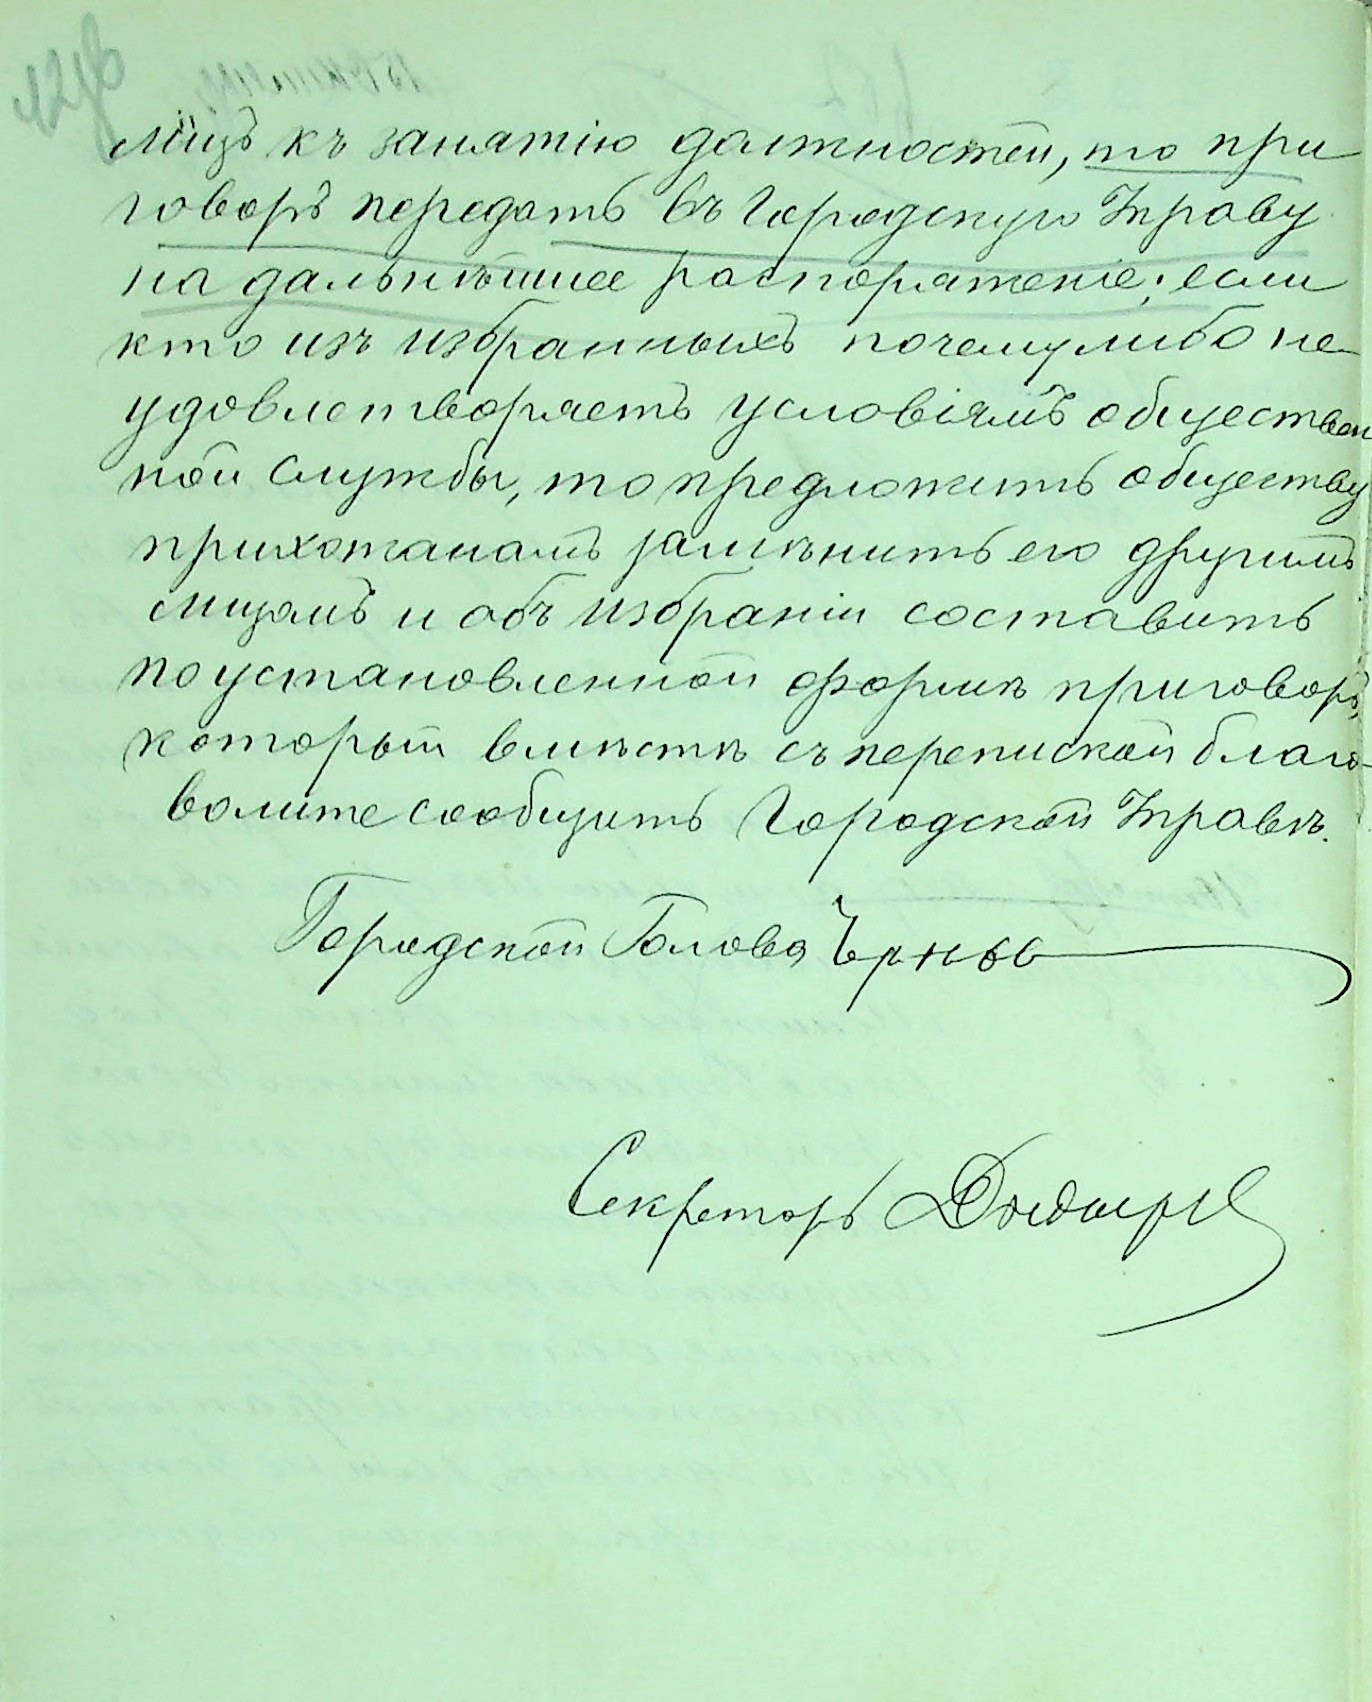 лицъ къ занятію должностей, то при
говоръ передать въ Городскую Управу
на дальнѣйшее распоряженіе; если
кто изъ избранныхъ почему либо не
удовлетворяетъ условіямъ обществен
ной службы, то предложить обществу
прихожанамъ замѣнить его другимъ
лицомъ и объ избраніи составить
по установленной формѣ приговоръ,
который вмѣстѣ съ перепиской благо-
волите сообщить Городской Управѣ.
Городской Голова
Секретарь